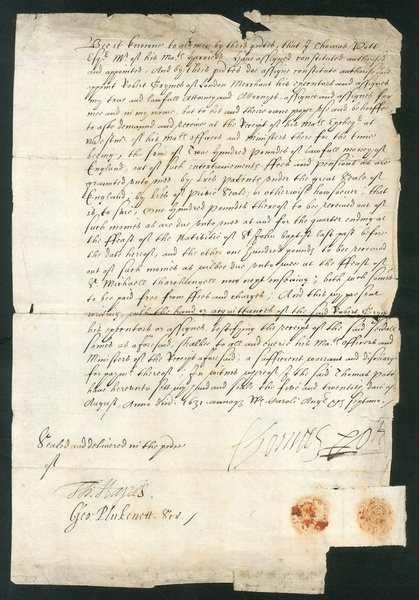 Bee it knowne to all men by theis pñtes, that I Thomas Pott
Esqe Mr of his Mats Harriers, have assigned constituted authorised
and appointed, And by theis pñtes doe assigne constitute authorise and
appoint Robert of London Merchant his executors and assignes
my true and lawfull Attorney and Attorneys, assignee and assignes, for
mee and in my name, but to his and theire owne proper use and behoofe
to aske demaund and receive at the Receipt of his Mats Excheqr at
Westmr of his Mats officers and Ministers there for the time
being, the some of Two hundred poundes of lawfull money of
England, out of such entertainements ffees and pensions as are
graunted unto mee by Lres patents under the great Seale of
England, by Lres of Privie Seale, or otherwise howsoever, that
is to saie, One hundred poundes thereof to be received out of
such moneis as are due unto mee at and for the quarter ending at
the ffeast of the Nativitie of St John Baptist last past before
the date hereof, and the other one hundred poundes to bee received
out of such moneis as wilbee due unto mee at the ffeast of
St Michaell Tharchangell now next ensuing; both wch somes
to be paid free from ffees and charges; And this my present
writing, with the hand or acquittances of the said Robert
his executors or assignes, testifying the receipt of the said
somes as aforesaid, shalbee to all and every his Mats officers and
Ministers of the Receipt aforesaid, a sufficient warrant and discharge
for paymt thereof. In witnes whereof I the said Thomas Pott
have hereunto sett my hand and seale the five and twentieth daie of
August, Anno Dni 1631. annoqz Rs Caroli Angl &c Septimo.
Thomas Pott
Sealed and delivered in the pñce
of
Th: Hayes.
Geo: Plukenett Scr /